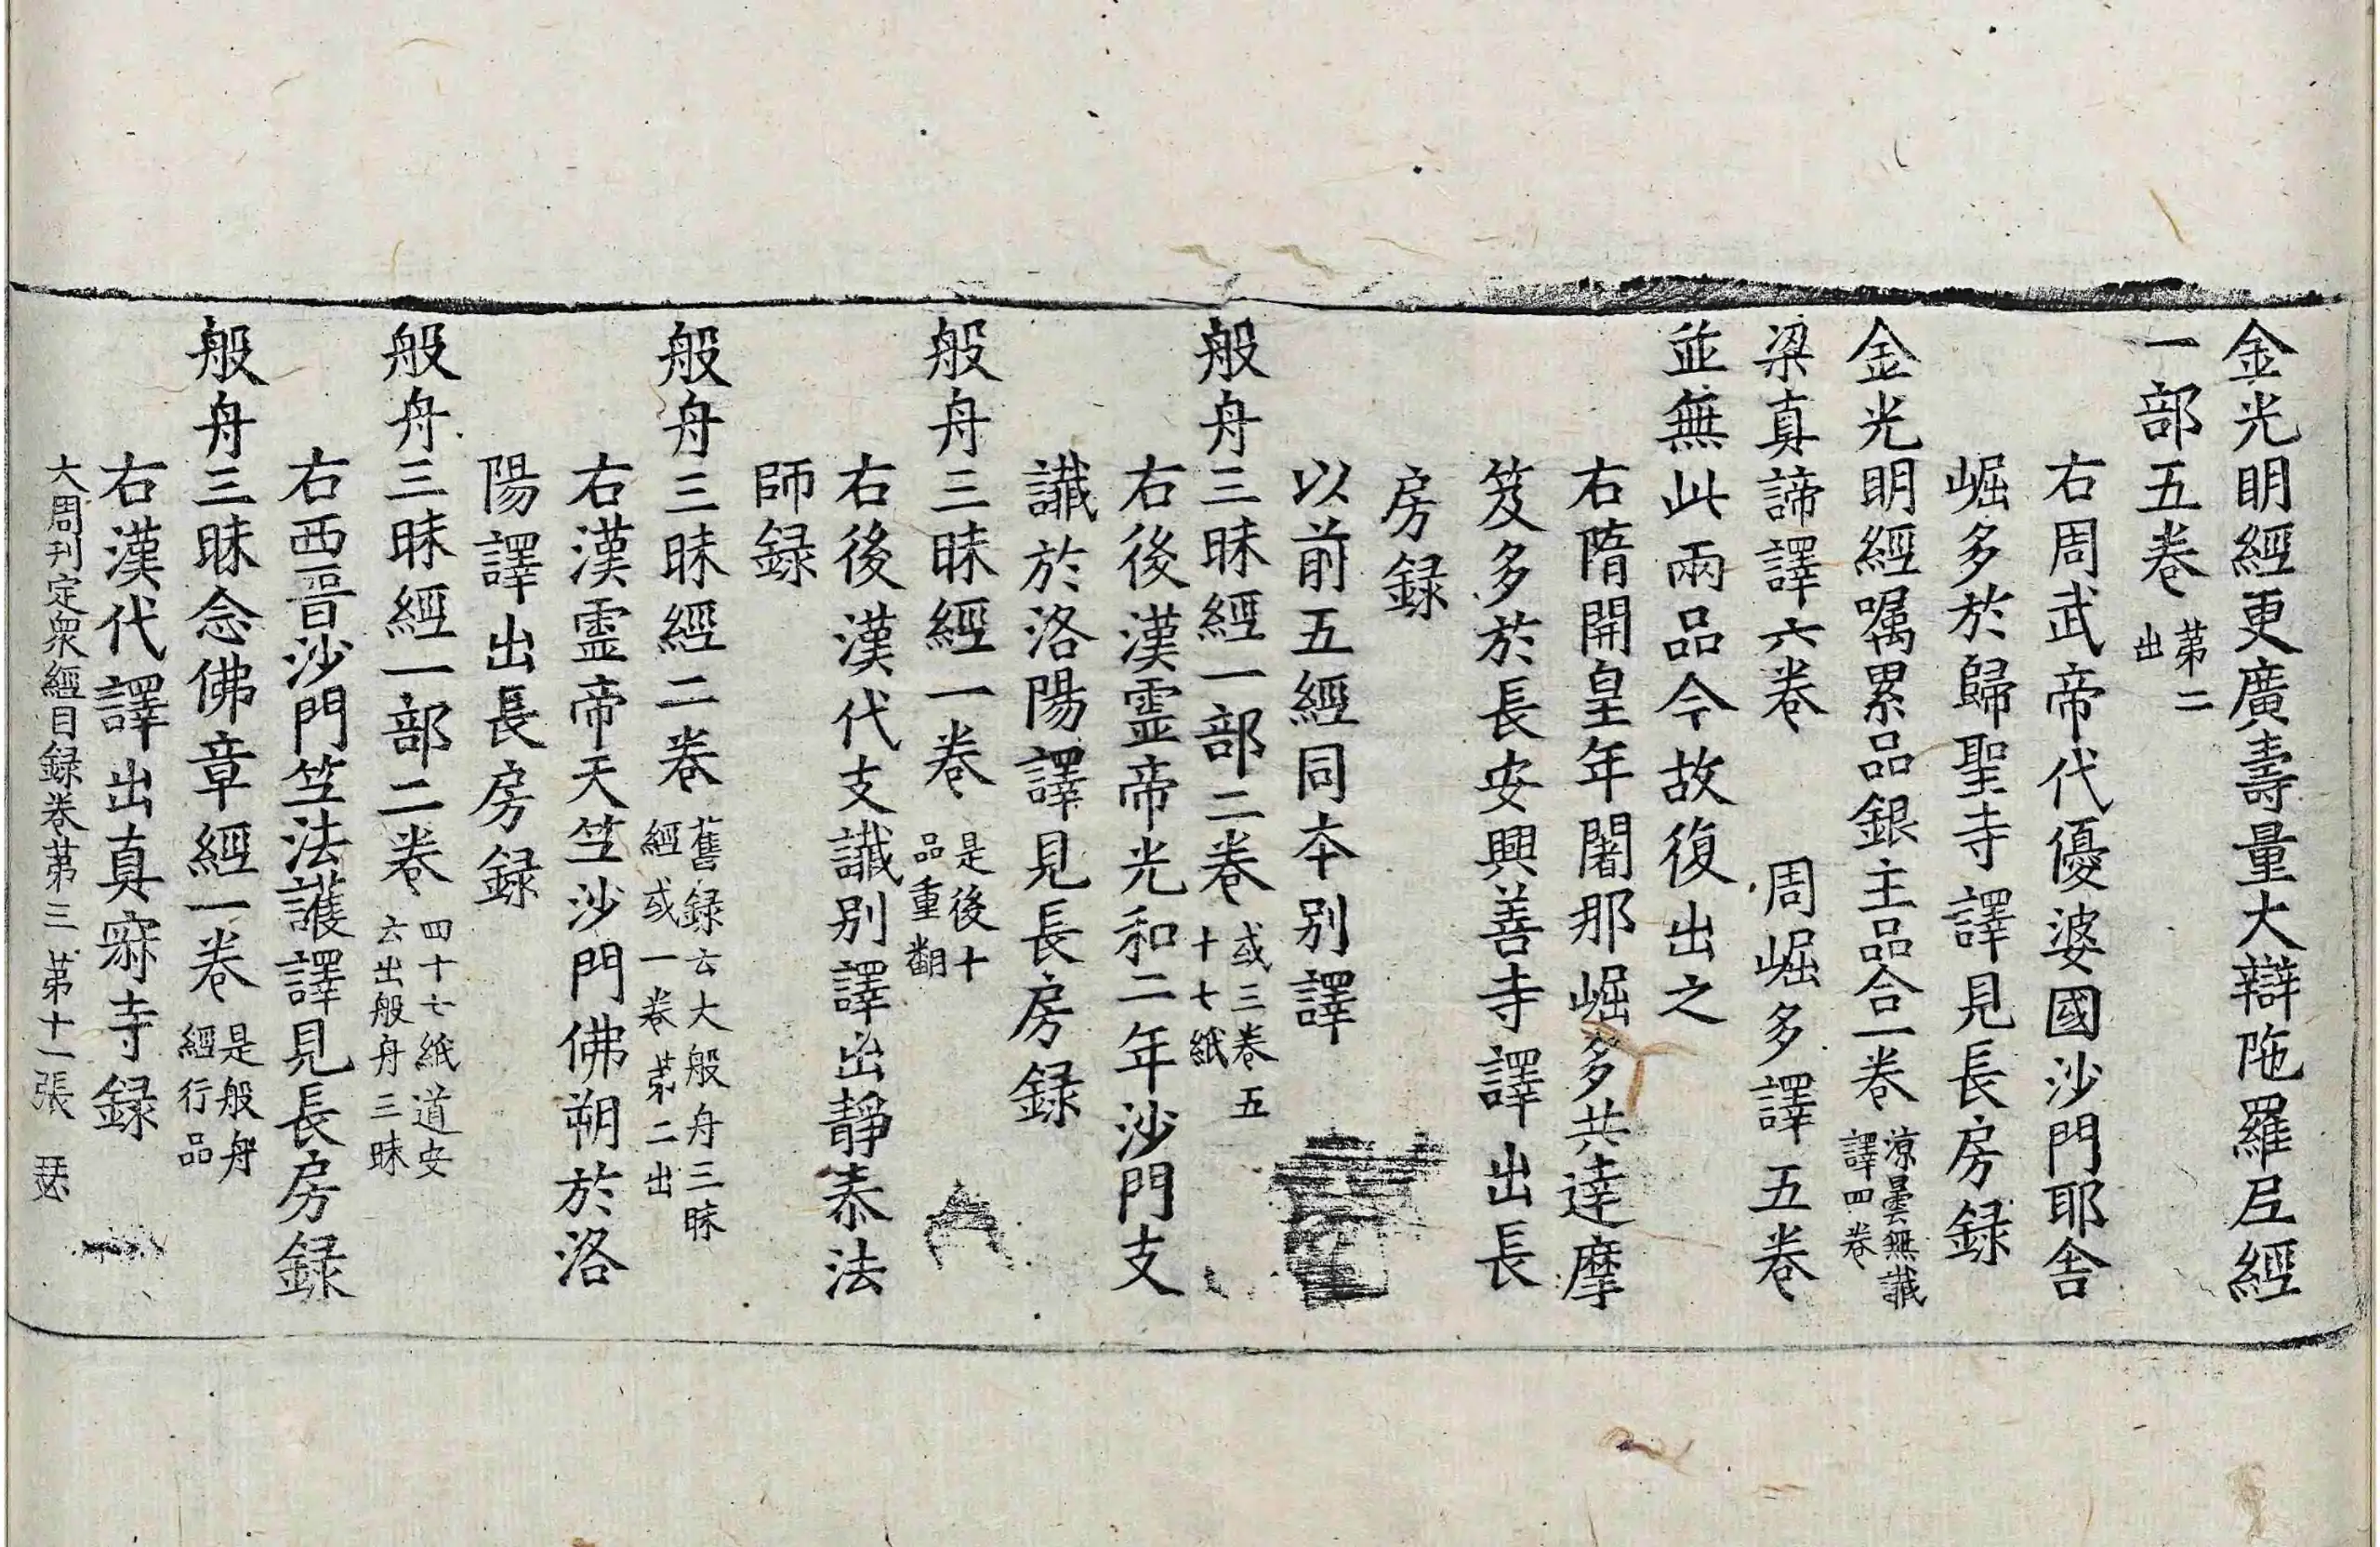 金光明經更廣壽量大辯陁羅尼經
一部五卷第二出
右周武帝代優婆國沙門耶舍
崛多於歸聖寺譯見長房録
金光明經嘱累品銀主品合一卷涼曇無讖譯四卷
梁真諦譯六卷　周崛多譯五卷
並無此兩品今故復出之
右隋開皇年闍那崛多共達摩
笈多於長安興善寺譯出長
房録
以前五經同本別譯
般舟三昧經一部二卷或三卷五十七紙
右後漢靈帝光和二年沙門支
讖於洛陽譯見長房録
般舟三昧經一卷是後十品重翻
右後漢代支讖別譯出靜泰法
師録
般舟三昧經二卷舊録云大般舟三昧經或一卷第二出
右漢靈帝天竺沙門佛朔於洛
陽譯出長房録
般舟三昧經一部二卷四十七紙道安云出般舟三昧
右西晉沙門竺法護譯見長房録
般舟三昧念佛章經一卷是般舟經行品
右漢代譯出真寂寺録
大周刊定衆經目録卷第三　第十一張　瑟